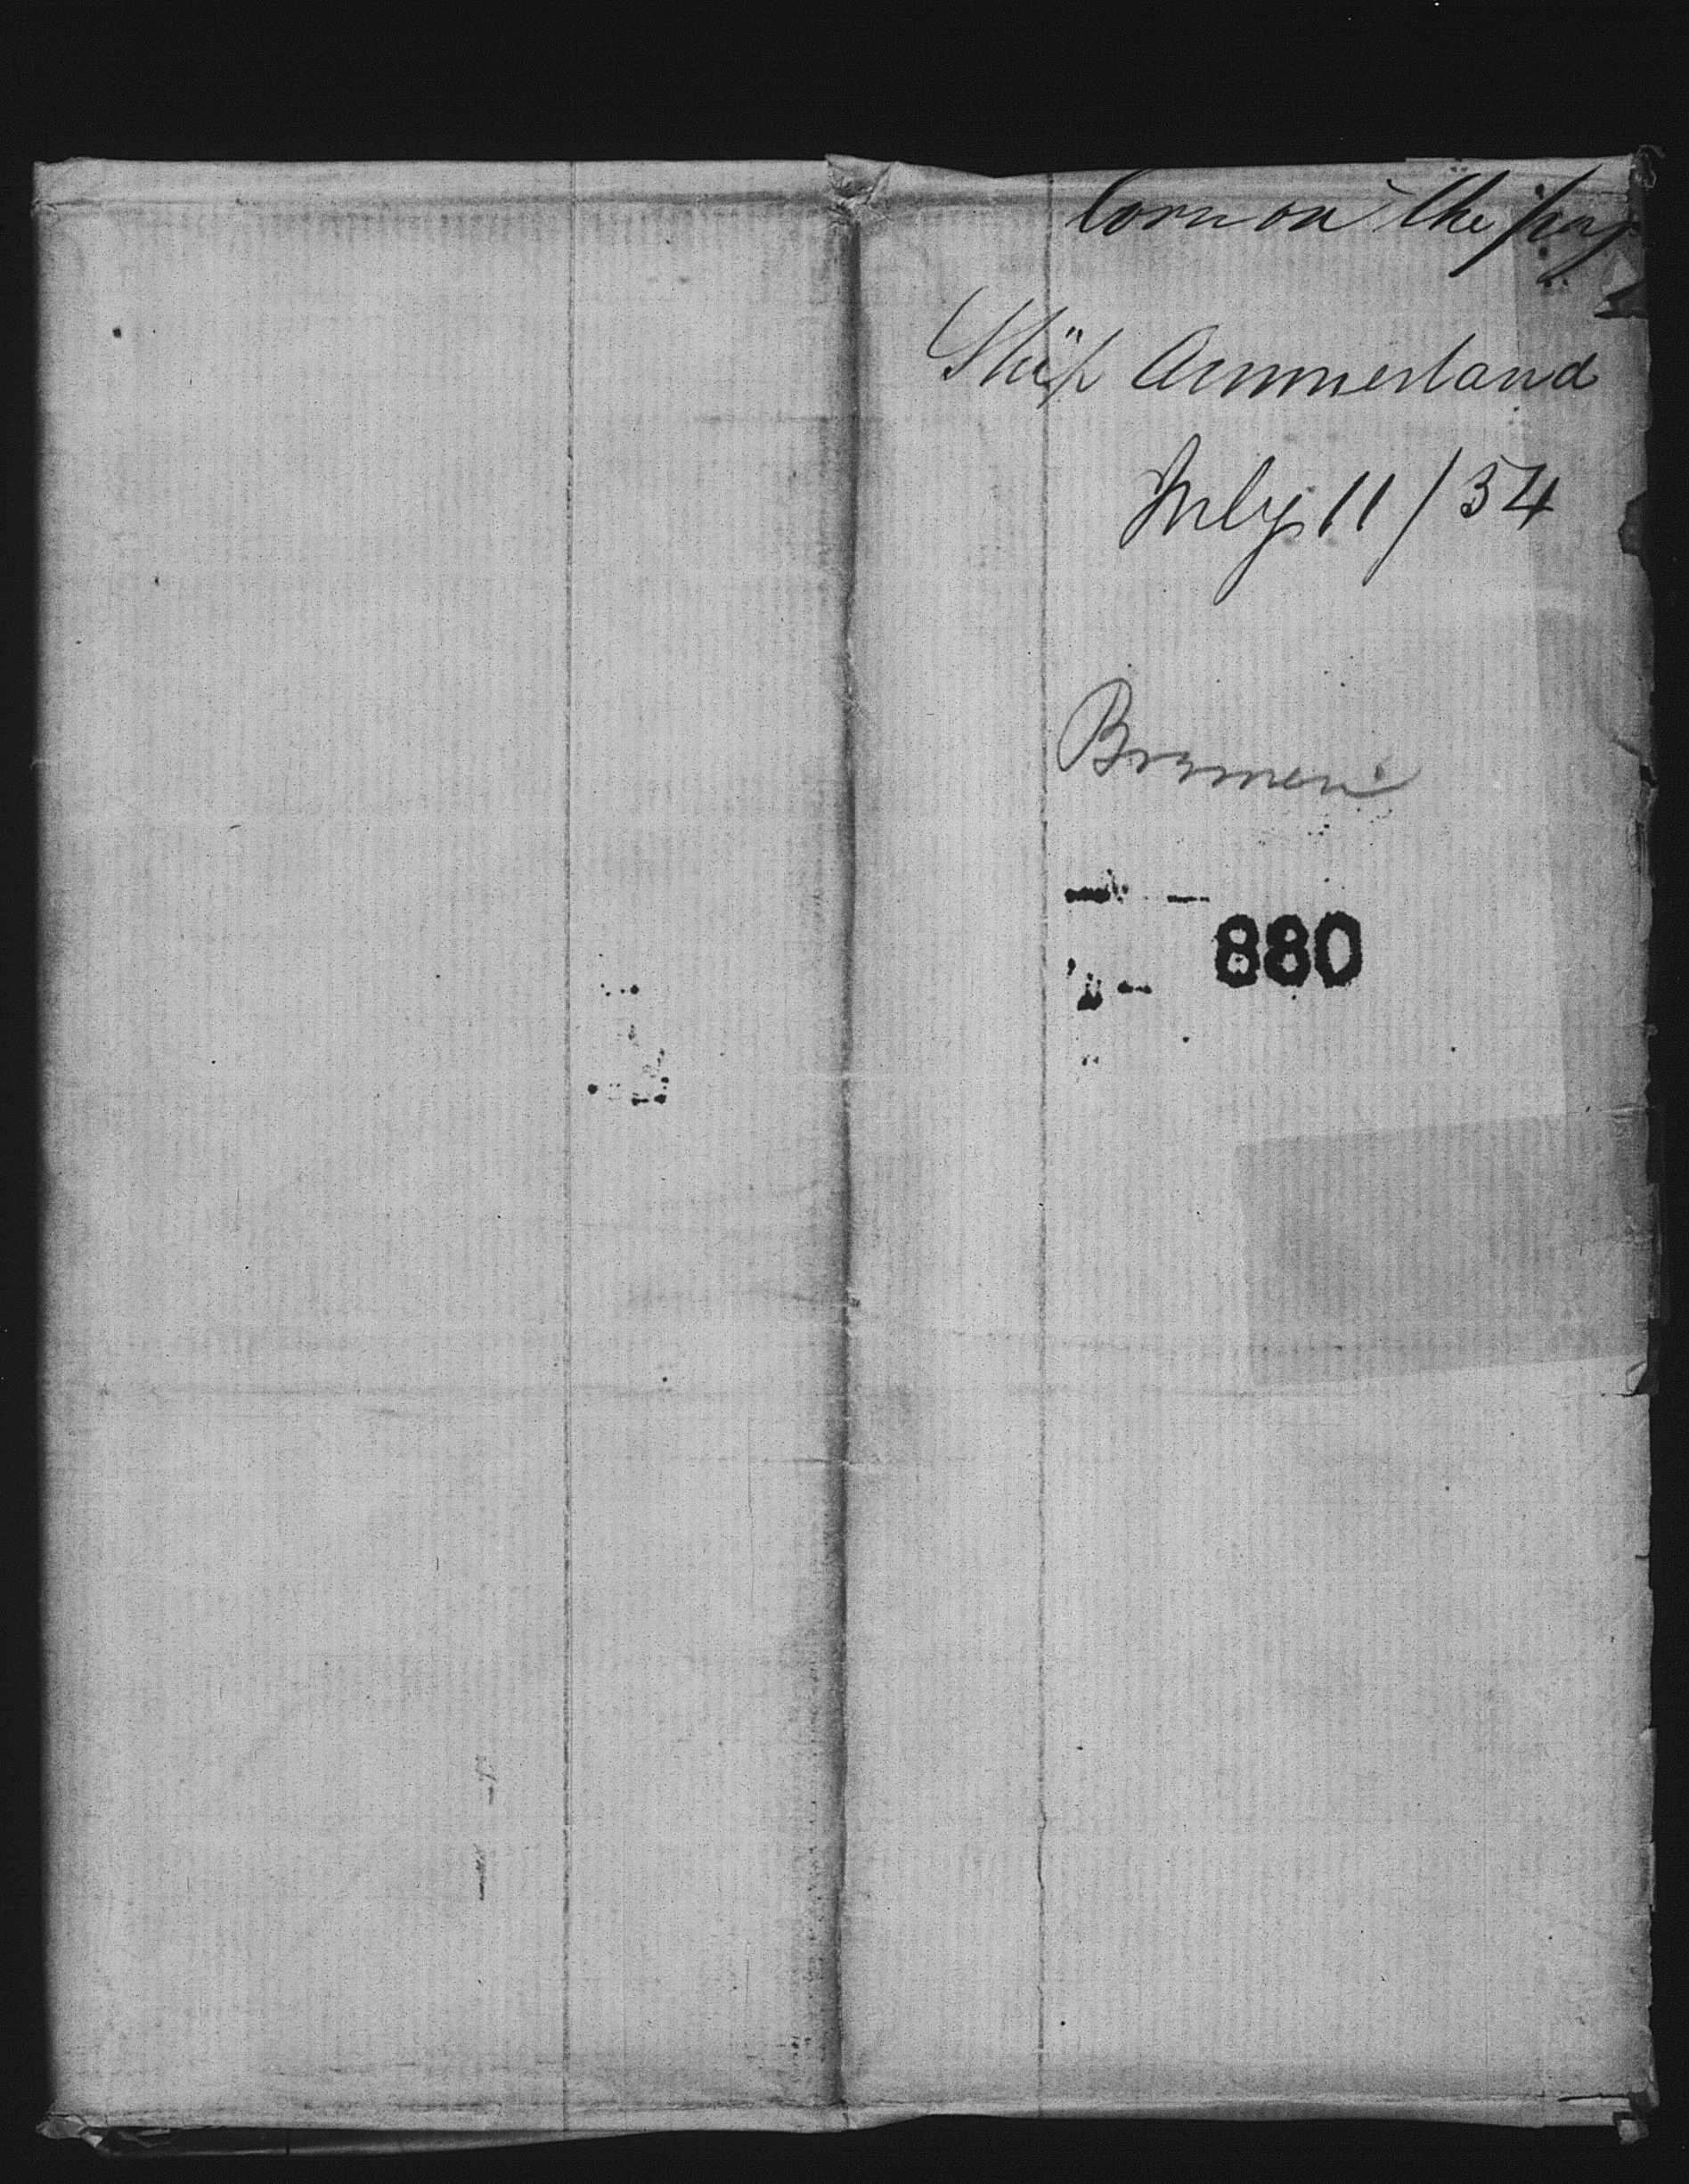 torn on the pag
Ship Ammerland
July 11/54
Bremen
880